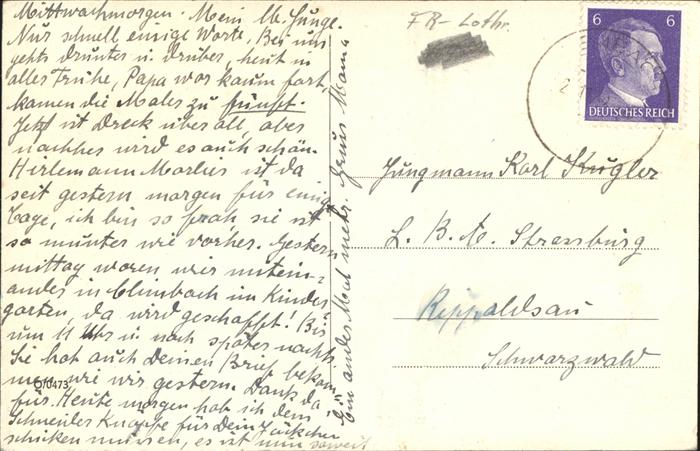 Mittwochmorgen. Mein lb. Junge.
Nur schnell einige Worte, Bei uns
gehts drunter u. drüber, heut in
aller Frühe, Papa war kaum fort
kamen die Maler zu fünft.
Jetzt ist Dreck überall, aber
nachher wird es auch schön.
Hirlemann Marlies ist da
seit gestern morgen für einige
Tage, ich bin so froh, sie ist
so munter wie vorher. Gestern
mittag waren wir mitein=
ander in Climbach im Kinder
garten, da wird geschafft! Bis
um 11 Uhr in noch später nachts
Sie hat auch Deinen Brief bekom
men wie wir gestern. Dank da
für. Heute morgen hab ich dem
Schneider Knöpfe für Dein Jäckchen
schicken müssen, es ist nun soweit
Ein ander Mal mehr. Gruss Mama
O/0473
FR-Lothr.
6 6
DEUTSCHES REICH
Jungmann Karl Kugler
L. B. A. Strassburg
Rippoldsau
Schwarzwald